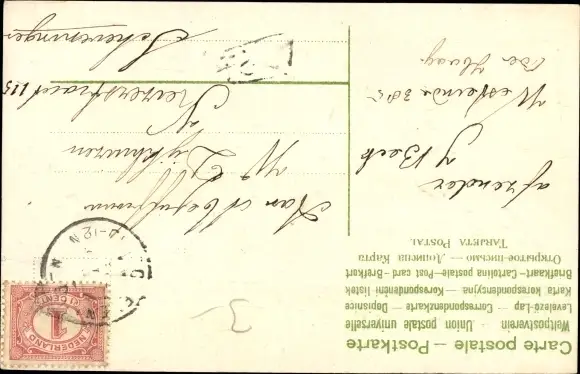 Carte postale — Postkarte
Weltpostverein · Union postale universelle
Levelező-Lap — Correspondenzkarte — Dopisnice
Karta korespondencyjna — Korespondenční listek
Briefkaart — Cartolina postale — Post card — Brefkort
Открытое письмо — Дописна Карта
TARJETA POSTAL
afzender
J Beck
Westeinde 38
Den Haag
Aan Mejuffrouw
Keizerstraat 115
Scheveningen
NEDERLAND
1
CENT
3-